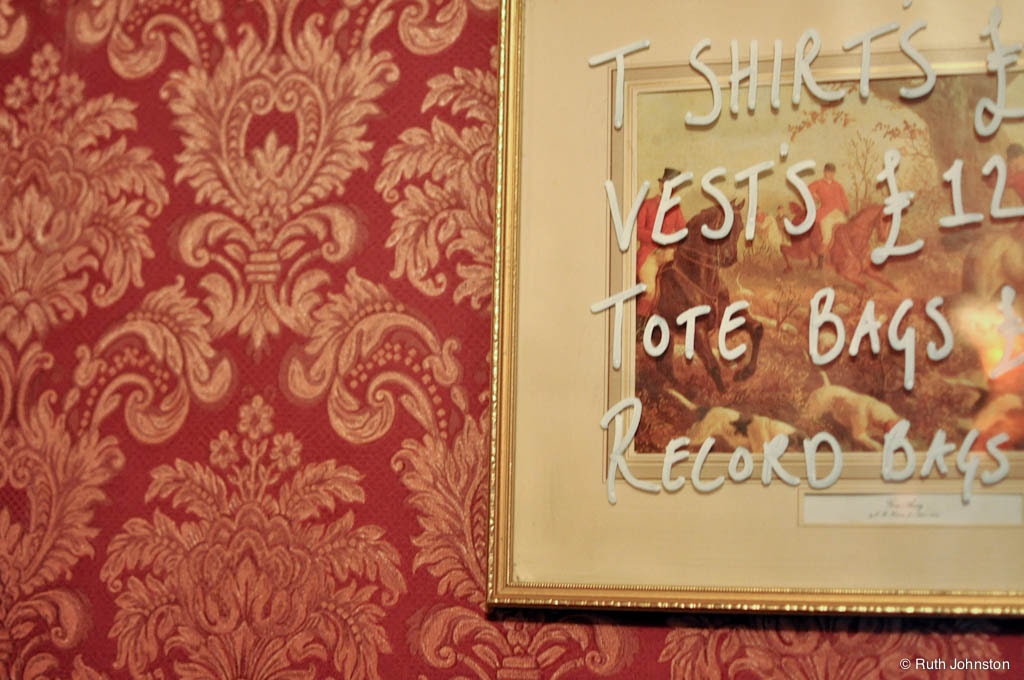 T SHIRT'S £
VEST'S £12
TOTE BAGS £
RECORD BAGS
© Ruth Johnston